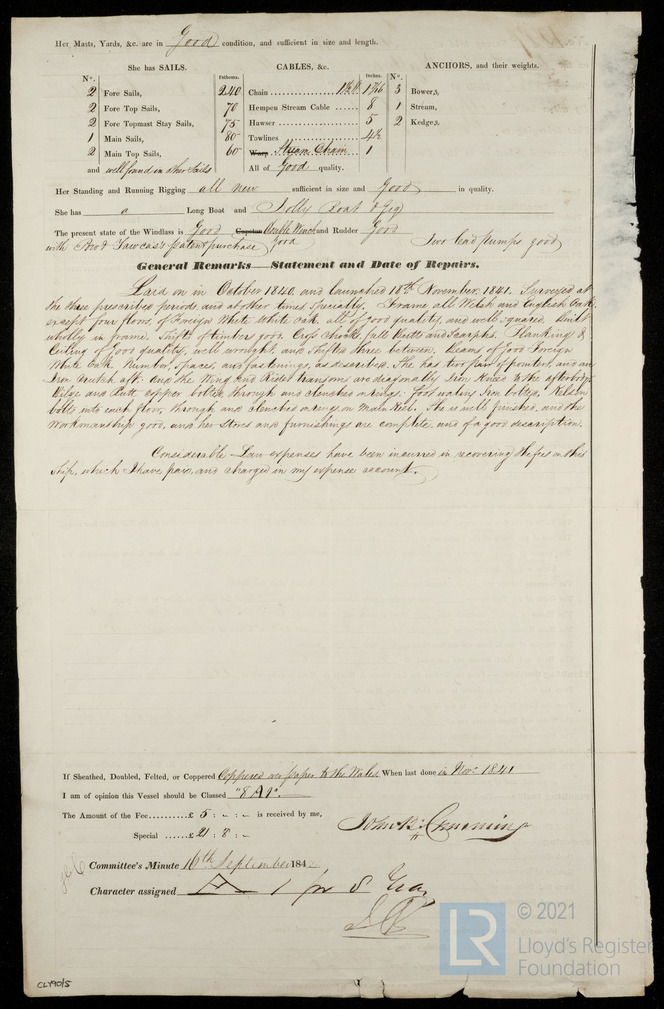 Her Masts, Yards, &c. are in Good condition, and sufficient in size and length.
She has SAILS.
CABLES, &c.
ANCHORS, and their weights.
N°.
Fathoms.
Inches.
N°.
2 Fore Sails,
240 Chain 1 7/16
3 Bowers,
2 Fore Top Sails,
70 Hempen Stream Cable 8
1 Stream,
2 Fore Topmast Stay Sails,
75 Hawser 5
2 Kedges,
1 Main Sails,
80 Towlines 4½
2 Main Top Sails,
60 Warp Stream Chain 1
and well found in other Sails
All of Good quality.
Her Standing and Running Rigging all new sufficient in size and Good in quality.
She has a Long Boat and Jolly Boat & Gig
The present state of the Windlass is Good Capstan Double Winch and Rudder Good
with patent purchase good Two Lead pumps good
General Remarks—Statement and Date of Repairs.
Laid on in October 1840, and launched 18th November, 1841. Surveyed at
the three prescribed periods, and at other times, Specially. Frame all Welsh and English Oak
except four floors, of Foreign White White Oak, all of good quality, and well squared. Built
wholly in frame. Shifts of timbers good. Cross Chocks, full Butts and Scarphs. Planking &
Ceiling of good quality, well wrought, and shifted three between. Beams of good Foreign
White Oak. Number, spaces, and fastenings, as described. She has two pair of pointers, and an
Iron Crutch aft. and the Wing and Rider transoms are diagonally Iron Kneed to the afterbody.
Bilge and Butt copper bolted through and clenched on rings: Foot waling Iron bolted. Kelson
bolts into each floor, through and clenched on rings on Main Keel. She is well finished, and the
Workmanship good, and her Stores and furnishings are complete, and of a good description.
Considerable Law expenses have been incurred in recovering the fees on this
Ship, which I have paid, and charged in my expense account.
If Sheathed, Doubled, Felted, or Coppered Coppered over paper to the Wales When last done in Novr 1841
I am of opinion this Vessel should be Classed "8 A1".
The Amount of the Fee.........£ 5 : - : - is received by me,
Special ......£ 21 : 8 : -
John B: Cumming
Committee's Minute 16th September 184
Character assigned A 1 for 8 Years
CLY90/5
LR
© 2021
Lloyd's Register
Foundation